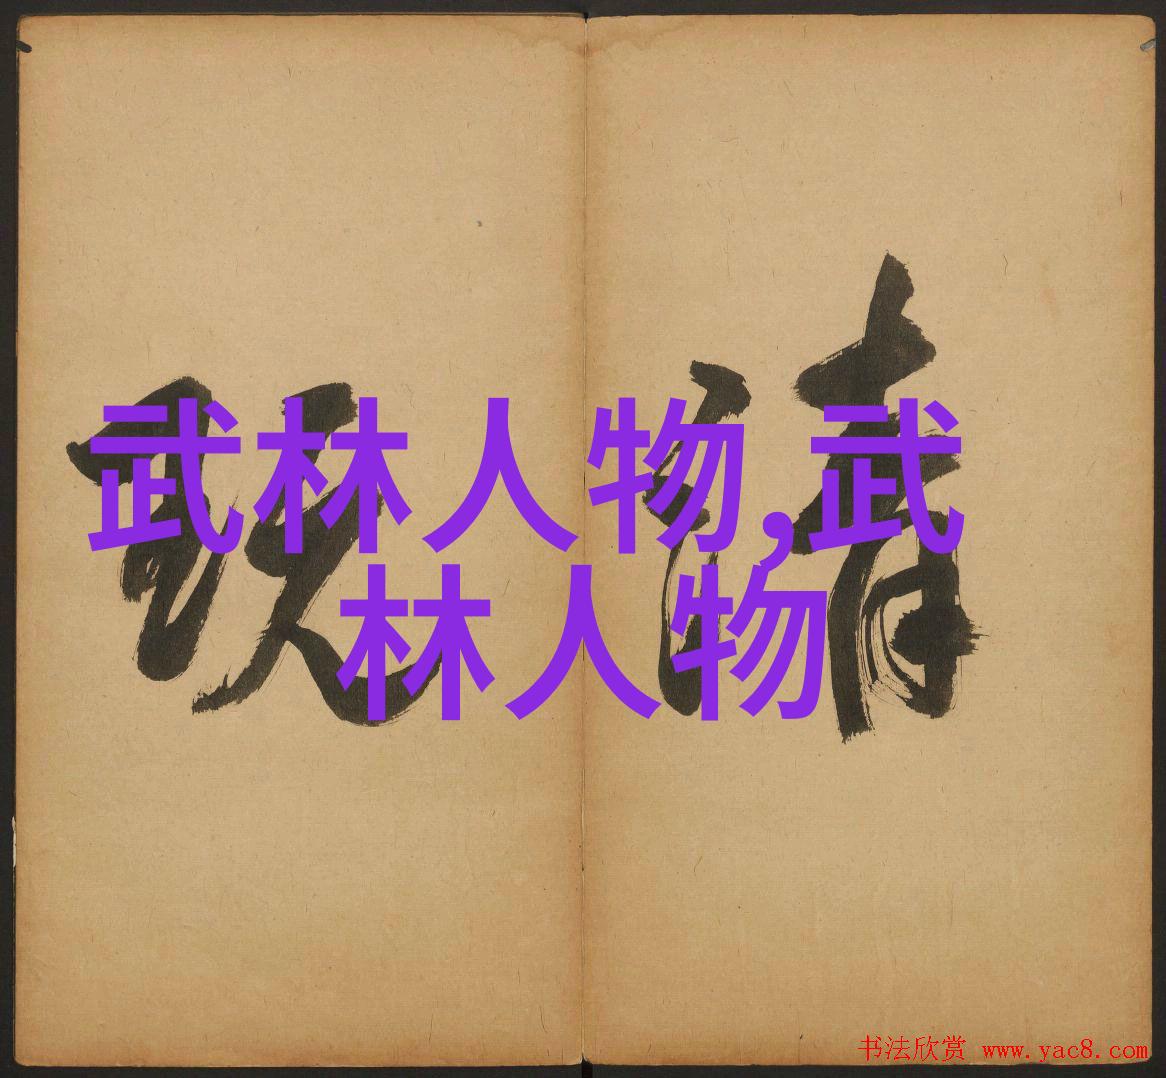 武林人物,武
林人物
书法欣赏 www.yac8.com